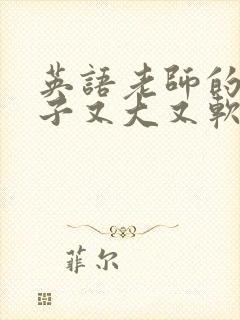 英語老師的
子又大又軟
菲尔